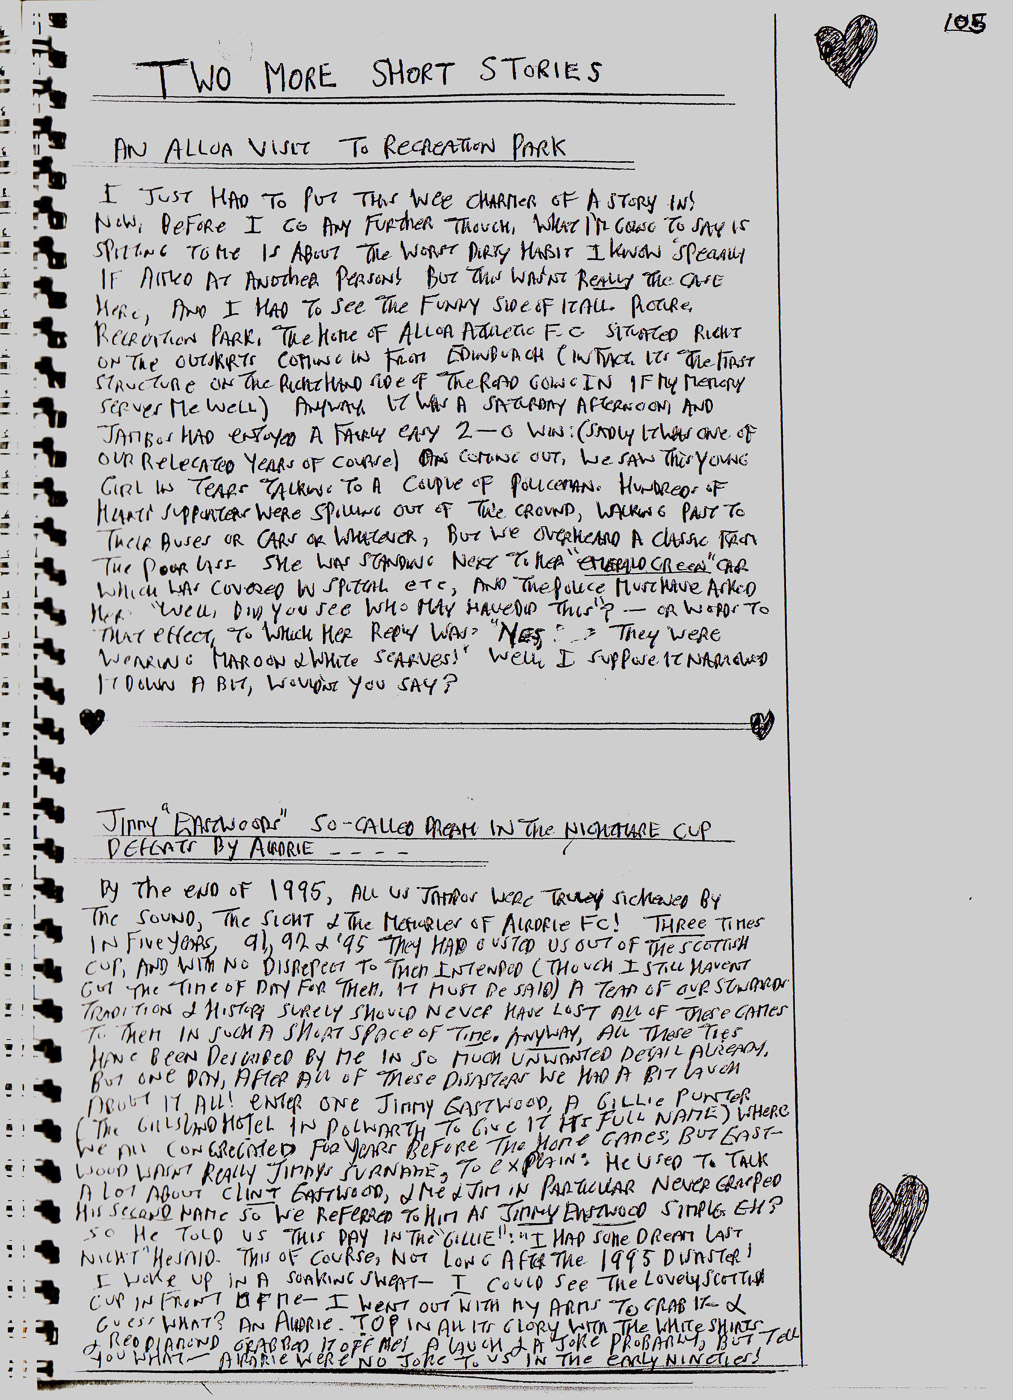 105
TWO MORE SHORT STORIES
AN ALLOA VISIT TO RECREATION PARK
I JUST HAD TO PUT THIS WEE CHARMER OF A STORY IN!
NOW, BEFORE I GO ANY FURTHER THOUGH, WHAT I'M GOING TO SAY IS
SPITTING TO ME IS ABOUT THE WORST DIRTY HABIT I KNOW 'SPECIALLY
IF AIMED AT ANOTHER PERSON! BUT THIS WASN'T REALLY THE CASE
HERE, AND I HAD TO SEE THE FUNNY SIDE OF IT ALL. PICTURE,
RECREATION PARK. THE HOME OF ALLOA ATHLETIC F.C SITUATED RIGHT
ON THE OUTSKIRTS COMING IN FROM EDINBURGH (IN FACT, ITS THE FIRST
STRUCTURE ON THE RIGHT HAND SIDE OF THE ROAD GOING IN IF MY MEMORY
SERVES ME WELL) ANYWAY. IT WAS A SATURDAY AFTERNOON AND
JAMBOS HAD ENJOYED A FAIRLY EASY 2-0 WIN: (SADLY IT WAS ONE OF
OUR RELEGATED YEARS OF COURSE) ON COMING OUT, WE SAW THIS YOUNG
GIRL IN TEARS TALKING TO A COUPLE OF POLICEMAN. HUNDREDS OF
HEARTS SUPPORTERS WERE SPILLING OUT OF THE GROUND, WALKING PAST TO
THEIR BUSES OR CARS OR WHATEVER, BUT WE OVERHEARD A CLASSIC FROM
THE POOR LASS SHE WAS STANDING NEXT TO HER "EMERALD GREEN" CAR
WHICH WAS COVERED IN SPITTAL ETC, AND THE POLICE MUST HAVE ASKED
HER "WELL, DID YOU SEE WHO MAY HAVE DID THIS"? — OR WORDS TO
THAT EFFECT, TO WHICH HER REPLY WAS: "YES, THEY WERE
WEARING MAROON & WHITE SCARVES!" WELL, I SUPPOSE IT NARROWED
IT DOWN A BIT, WOULDN'T YOU SAY?
JIMMY "EASTWOODS" SO-CALLED DREAM IN THE NIGHTMARE CUP
DEFEATS BY AIRDRIE ----
BY THE END OF 1995, ALL US JAMBOS WERE TRULY SICKENED BY
THE SOUND, THE SIGHT & THE MEMORIES OF AIRDRIE FC! THREE TIMES
IN FIVE YEARS, 91, 92 & '95 THEY HAD OUSTED US OUT OF THE SCOTTISH
CUP, AND WITH NO DISREPECT TO THEM INTENDED (THOUGH I STILL HAVENT
GOT THE TIME OF DAY FOR THEM, IT MUST BE SAID) A TEAM OF OUR STANDARDS
TRADITION & HISTORY SURELY SHOULD NEVER HAVE LOST ALL OF THESE GAMES
TO THEM IN SUCH A SHORT SPACE OF TIME. ANYWAY, ALL THESE TIES
HAVE BEEN DESCRIBED BY ME IN SO MUCH UNWANTED DETAIL ALREADY,
BUT ONE DAY, AFTER ALL OF THESE DISASTERS WE HAD A BIT LAUGH
ABOUT IT ALL! ENTER ONE JIMMY EASTWOOD, A GILLIE PUNTER
(THE GILLSLAND HOTEL IN POLWARTH TO GIVE IT ITS FULL NAME) WHERE
WE ALL CONGREGATED FOR YEARS BEFORE THE HOME GAMES, BUT EAST-
WOOD WASNT REALLY JIMMYS SURNAME, TO EXPLAIN: HE USED TO TALK
A LOT ABOUT CLINT EASTWOOD, & ME & JIM IN PARTICULAR NEVER GRASPED
HIS SECOND NAME SO WE REFERRED TO HIM AS JIMMY EASTWOOD SIMPLE EH?
SO HE TOLD US THIS DAY IN THE "GILLIE": "I HAD SOME DREAM LAST
NIGHT" HE SAID. THIS OF COURSE, NOT LONG AFTER THE 1995 DISASTER!
I WOKE UP IN A SOAKING SWEAT— I COULD SEE THE LOVELY SCOTTISH
CUP IN FRONT OF ME— I WENT OUT WITH MY ARMS TO GRAB IT— &
GUESS WHAT? AN AIRDRIE TOP IN ALL ITS GLORY WITH THE WHITE SHIRTS
& RED DIAMOND GRABBED IT OFF ME! A LAUGH & A JOKE PROBABLY, BUT TELL
YOU WHAT— AIRDRIE WERE NO JOKE TO US IN THE EARLY NINETIES!